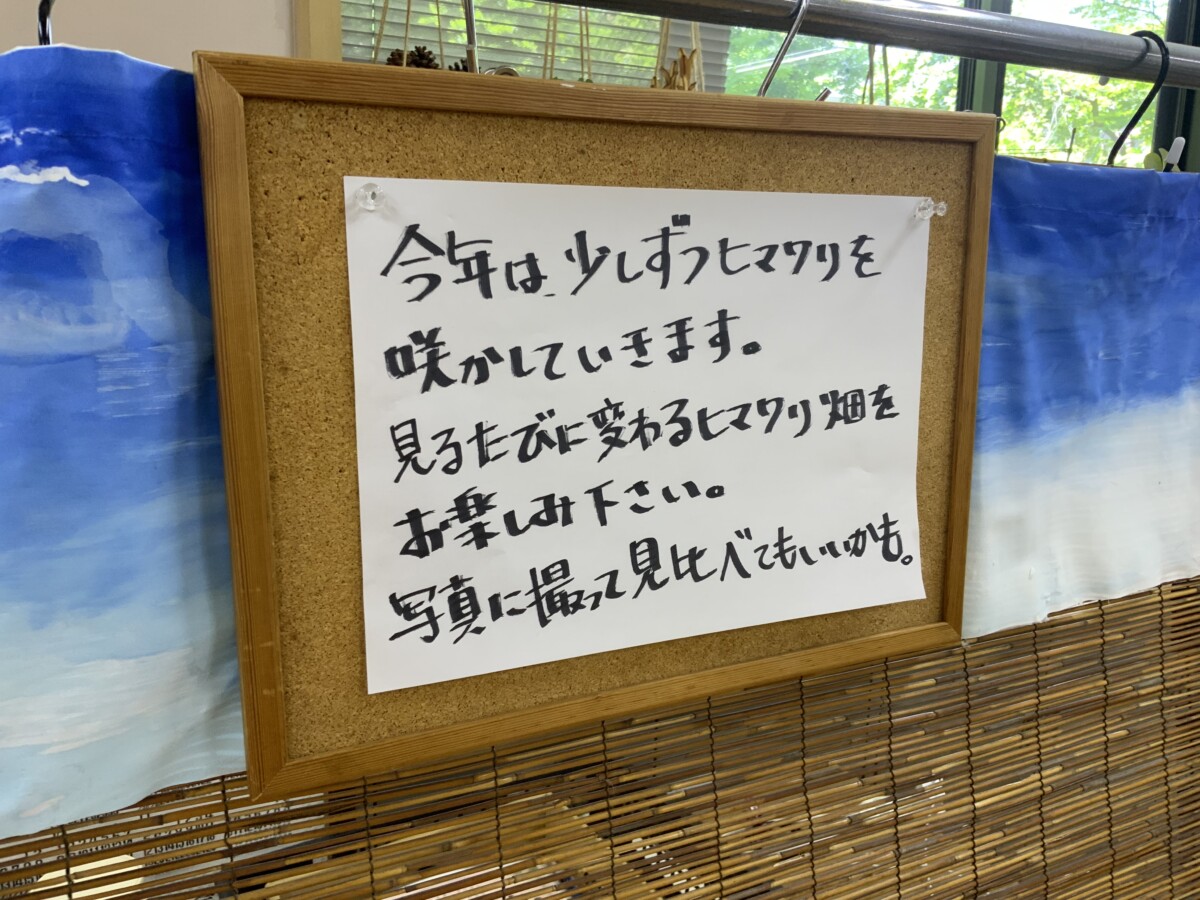 今年は、少しずつヒマワリを
咲かしていきます。
見るたびに変わるヒマワリ畑を
お楽しみ下さい。
写真に撮って見比べてもいいかも。